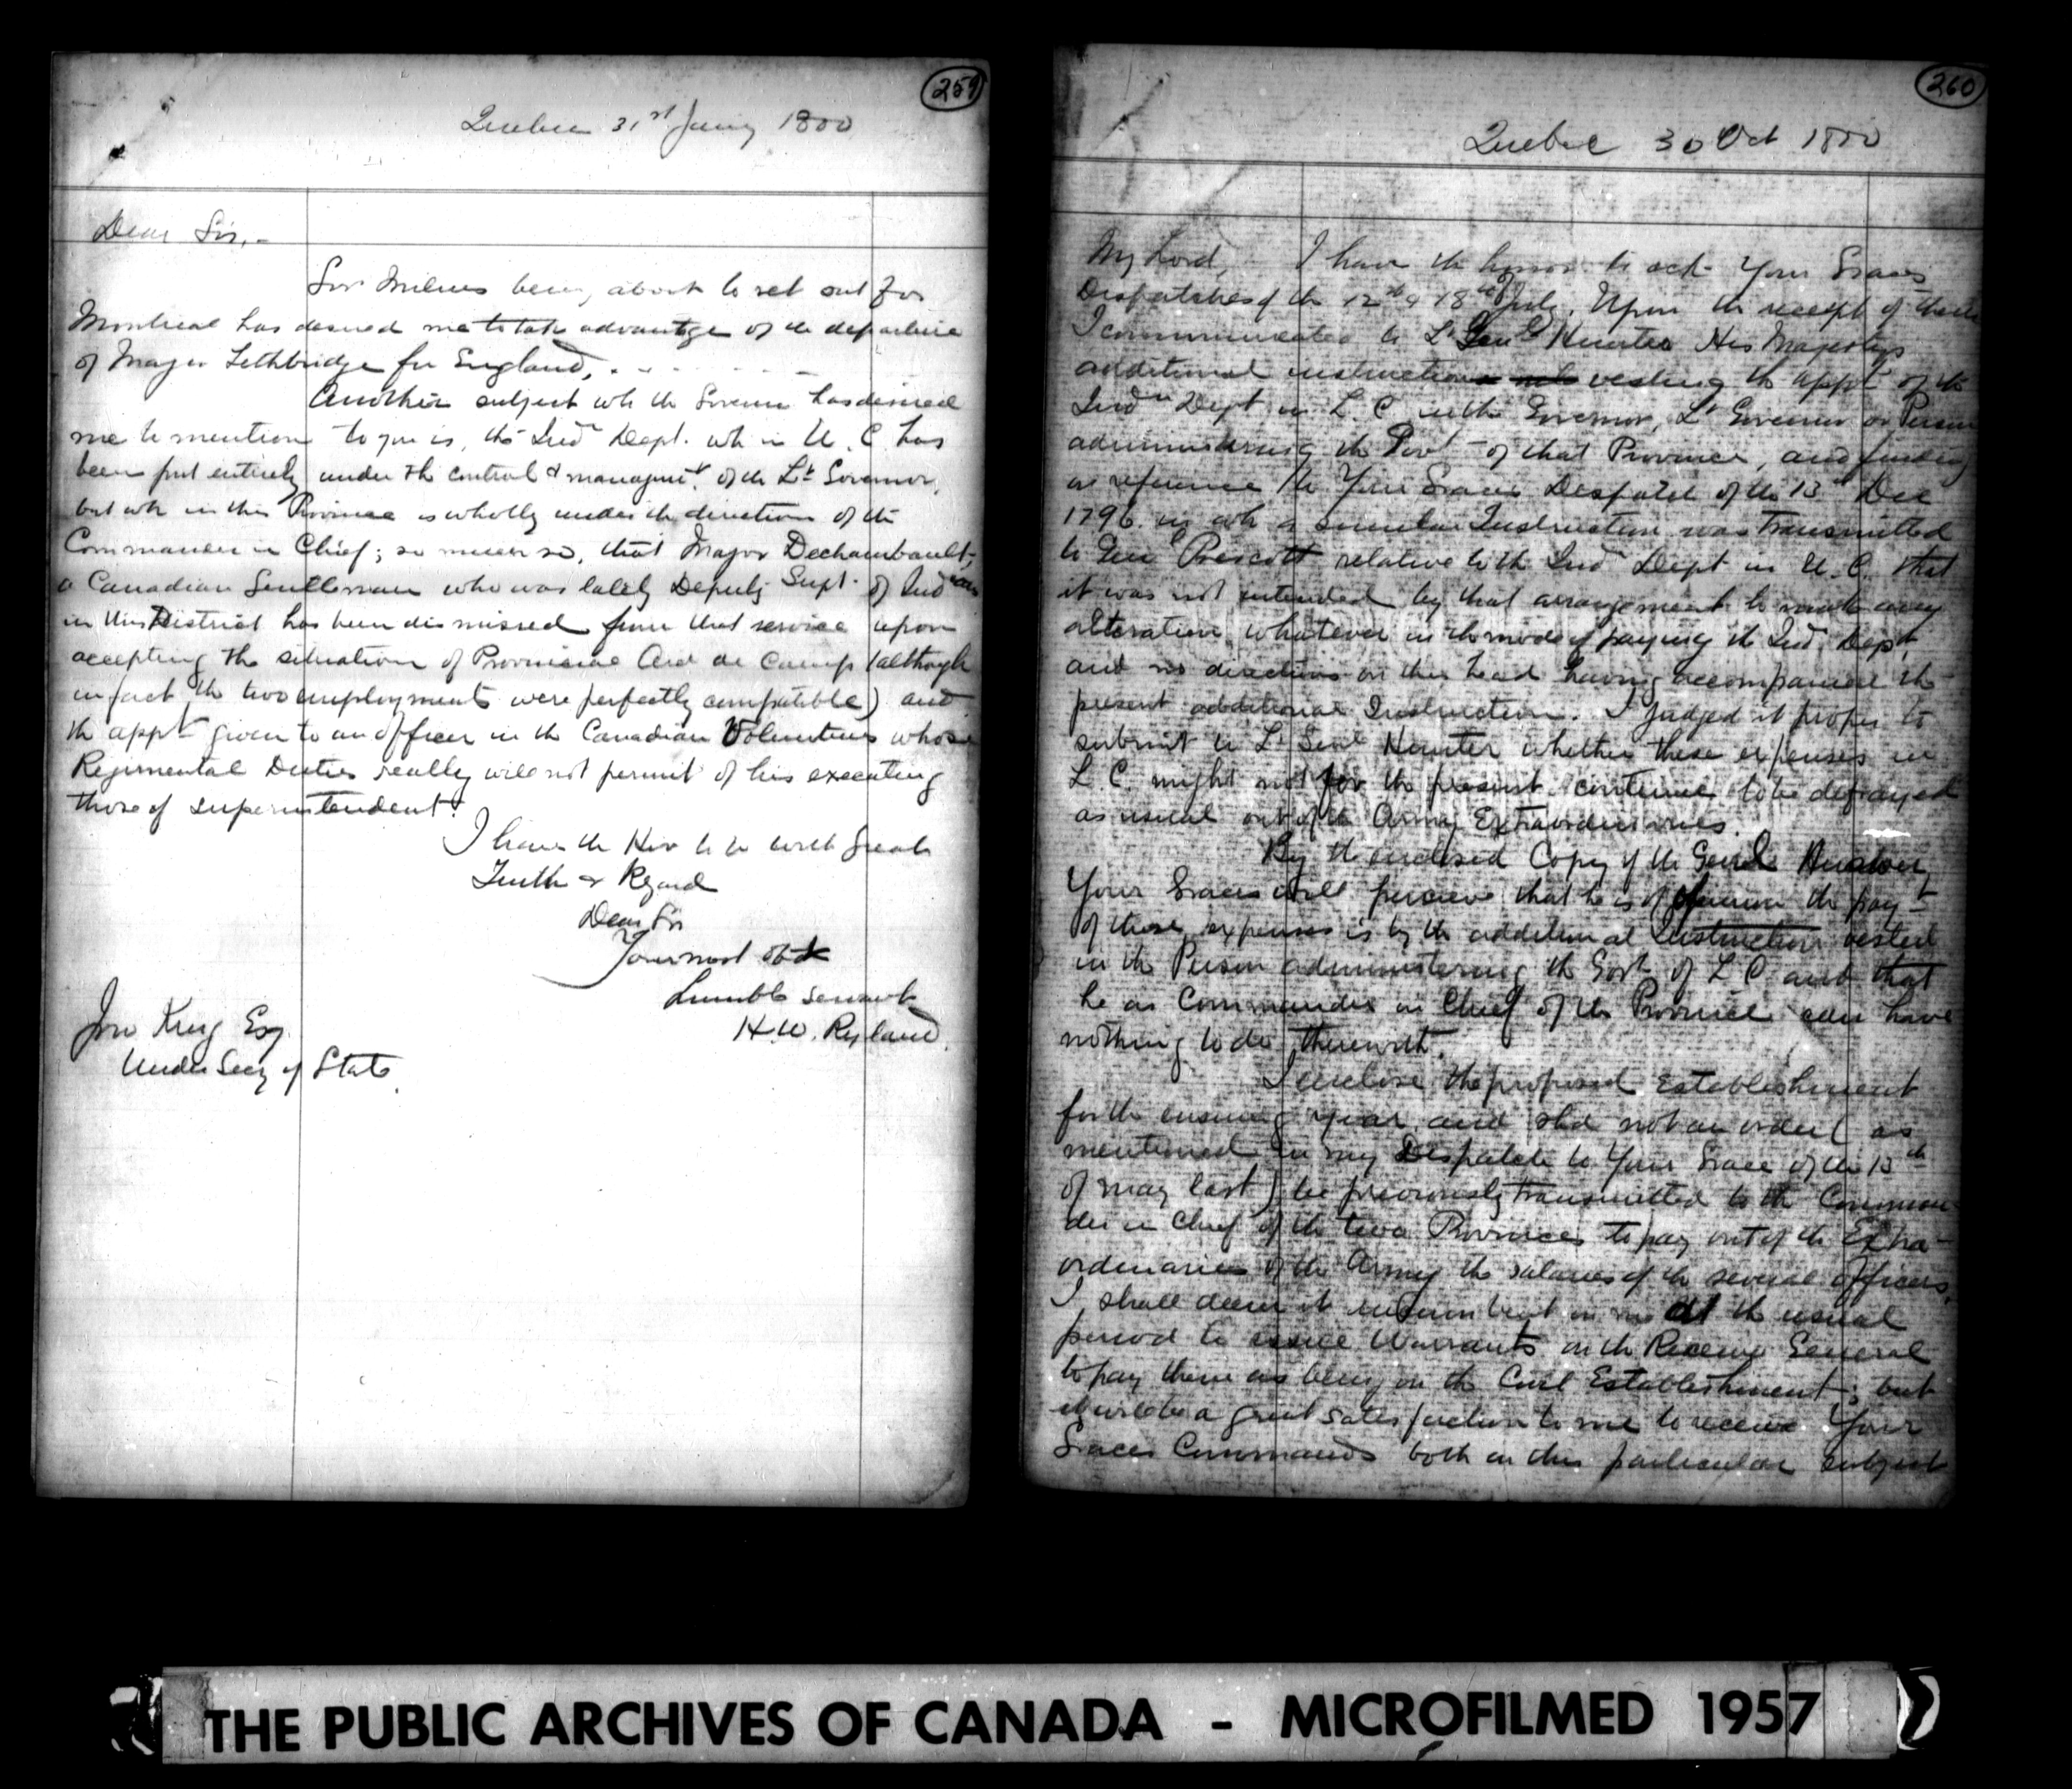 259
Quebec 31st Jany 1800
Dear Sir,-
Gov Milnes being about to set out for
Montreal has desired me to take advantage of the departure
of Major Lethbridge for England, . - - - - -
Another subject wh the Governor has desired
me to mention to you is, the Indn Dept. wh in U. C has
been put entirely under the control & managmt. of the Lt Governor,
but wh in this Province is wholly under the direction of the
Commander in Chief; so much so, that Major Dechambault,
a Canadian Gentleman who was lately Deputy Supt. of Indians
in this District has been dismissed from that service upon
accepting the situation of Provincial Aid de Camp (although
in fact the two employments were perfectly compatible) and
the appt given to an officer in the Canadian Volunteers whose
Regimental Duties really will not permit of his executing
those of superintendent.
I have the Hor to be with great
Truth & Regard
Dear Sir
Your most obdt
humble servant
H.W. Ryland.
Jno King Esq.
Under Secy of State.
260
Quebec 30 Oct 1800
My Lord, I have the honor to ack Your Graces
Despatches of the 12th & 18th of July. Upon the receipt of these
I communicated to Lt Genl Hunter His Majestys
additional instructions vesting the appt of the
Indn Dept in L. C in the Governor, Lt Governor or Person
administering the Govt of that Province, and finding
on reference to Your Graces Despatch of the 13th Dec
1796 in wh a similar Instruction was transmitted
to Genl Prescott relative to the Ind Dept in U. C. that
it was not intended by that arrangement to make any
alteration whatever in the mode of paying the Ind. Dept,
and no directions on this head having accompanied the
present additional Instruction. I judged it proper to
submit to Lt Genl Hunter whether these expenses in
L. C. might not for the present continue to be defrayed
as usual out of the Army Extraordinaries.
By the enclosed Copy of the Genls Answer
Your Grace will perceive that he is of opinion the payt
of those expenses is by the additional Instruction vested
in the Person administering the Govt of L C and that
he as Commander in Chief of the Province can have
nothing to do therewith.
I enclose the proposed Establishment
for the ensuing year, and shd not an order (as
mentioned in my Despatch to Your Grace of the 13th
of May last) be previously transmitted to the Comman-
der in Chief of the two Provinces to pay out of the Extra-
ordinaries of the Army the salaries of the several officers,
I shall deem it incumbent on me at the usual
period to issue Warrants on the Receiver General
to pay them as being on the Civil Establishment; but
it will be a great satisfaction to me to receive Your
Graces Commands both on this particular subject
THE PUBLIC ARCHIVES OF CANADA - MICROFILMED 1957